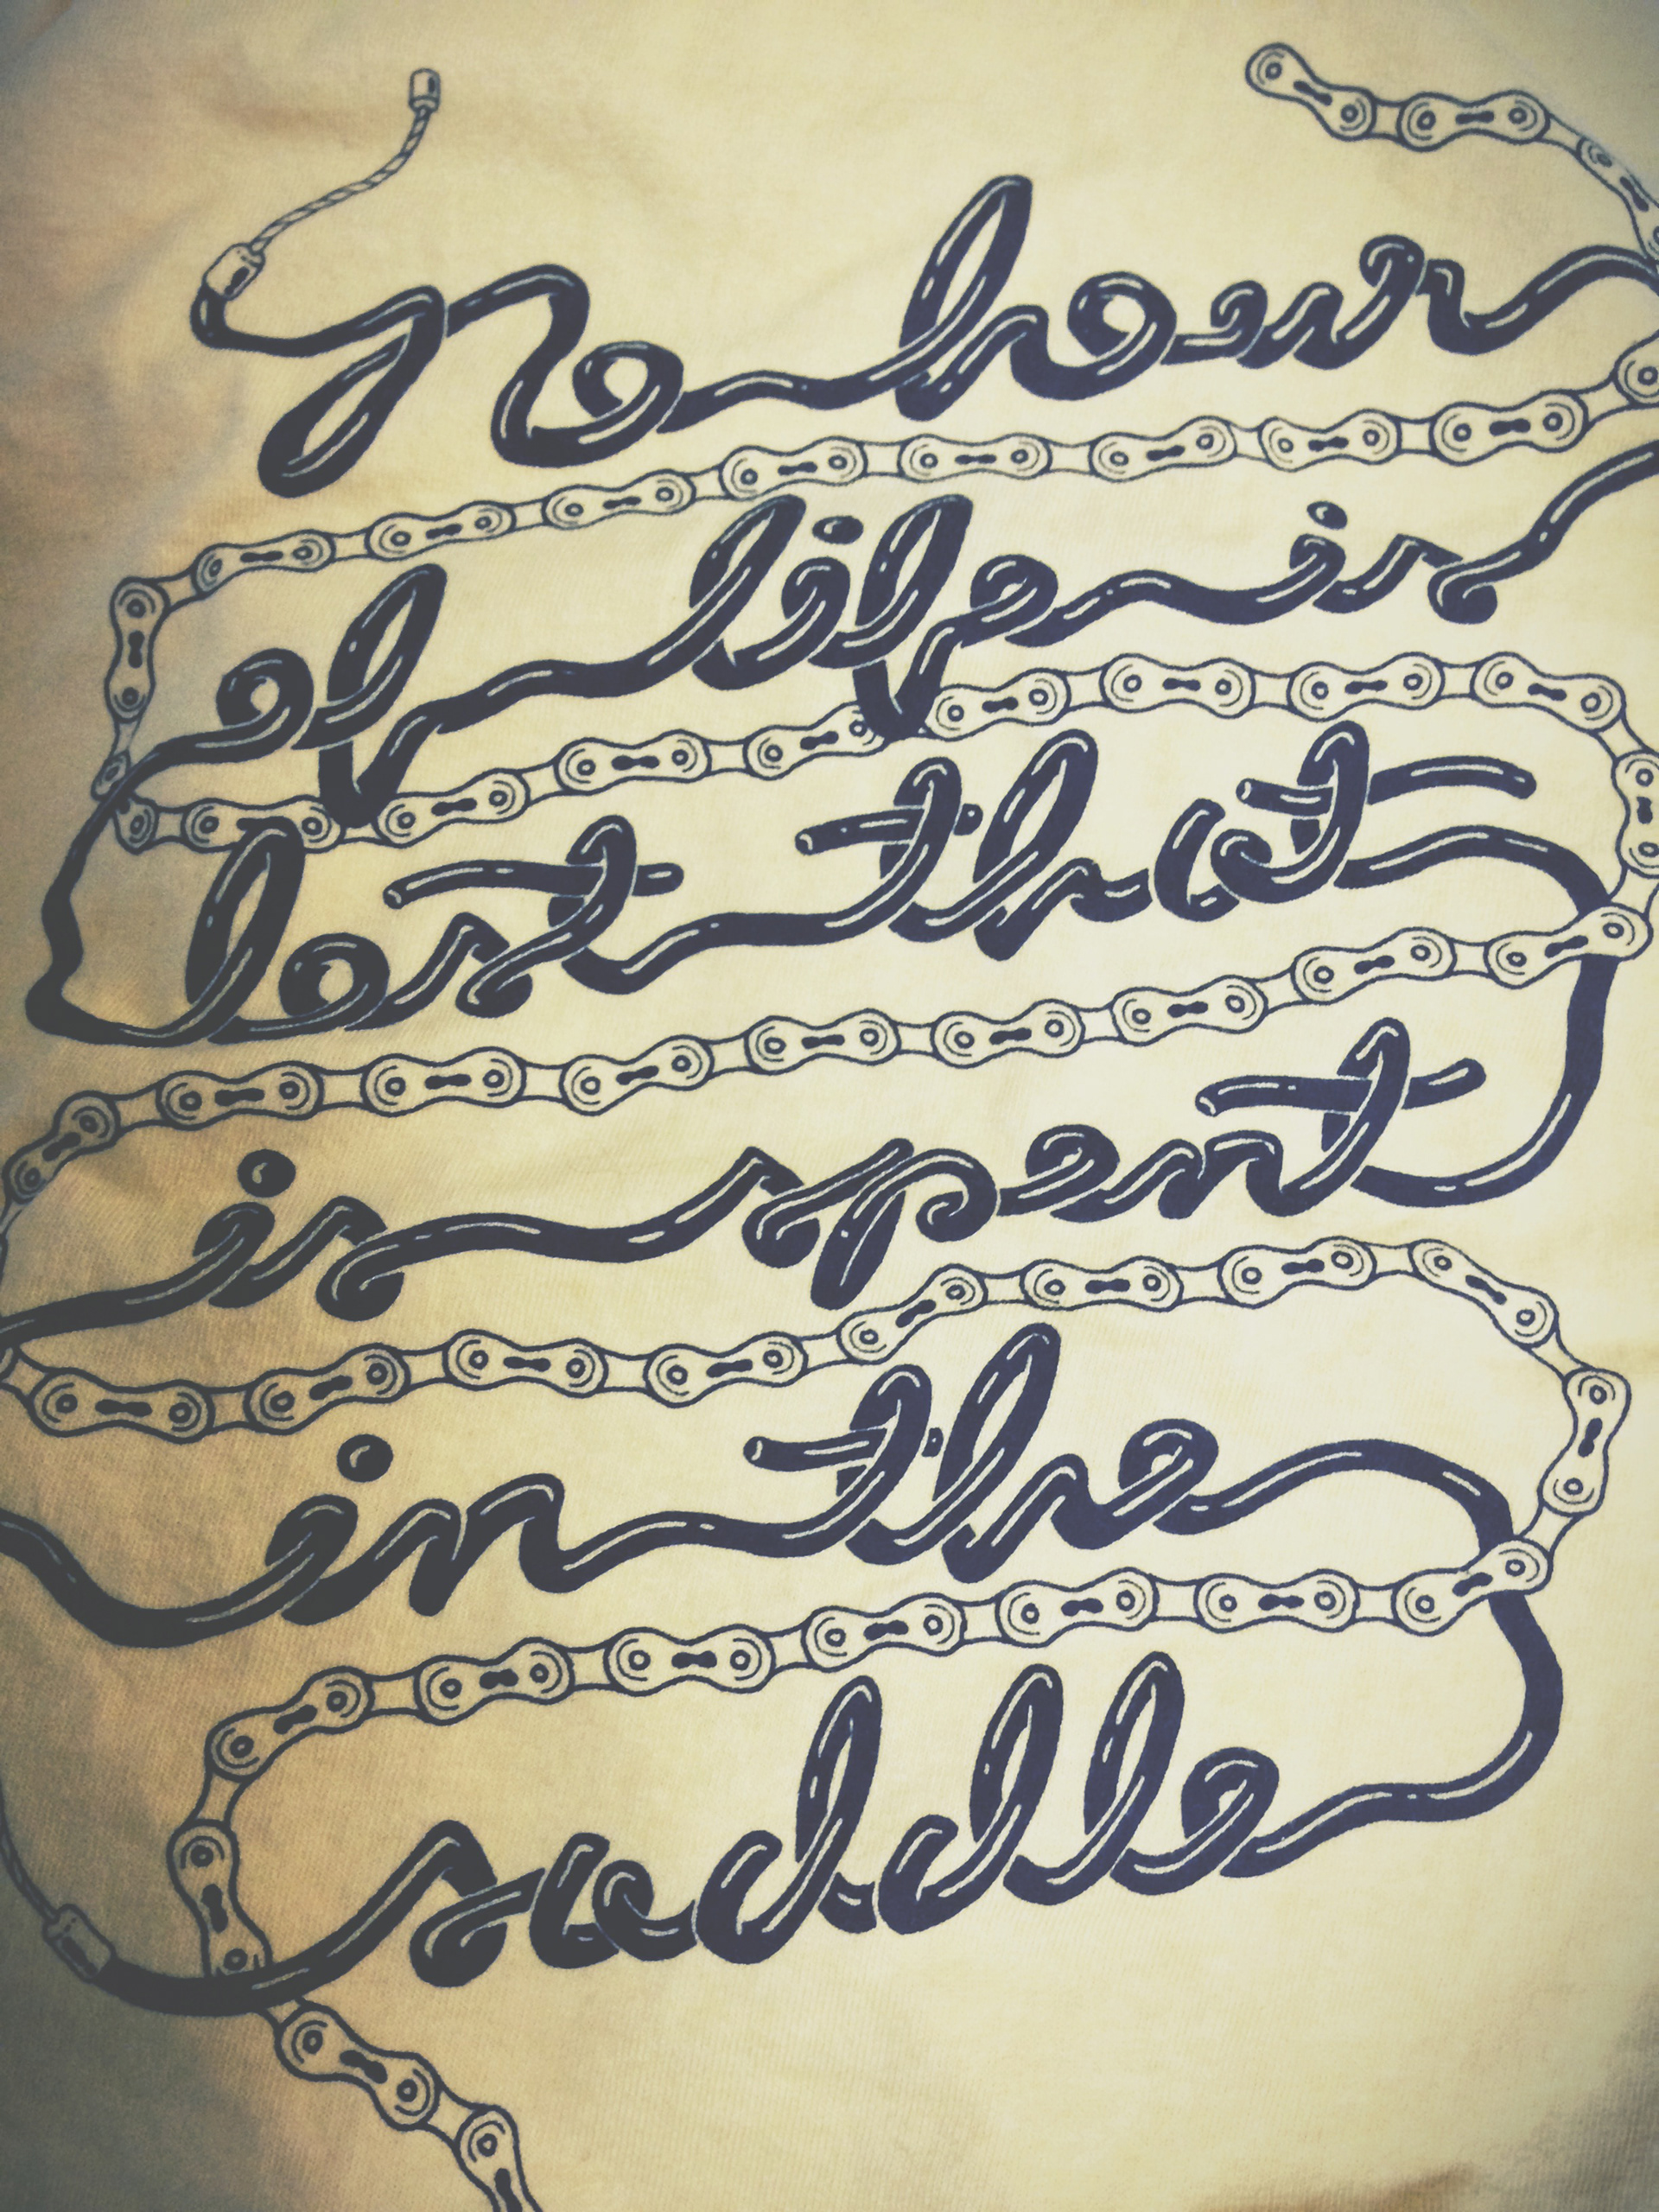 No hour
of life is
lost that
is spent
in the
saddle